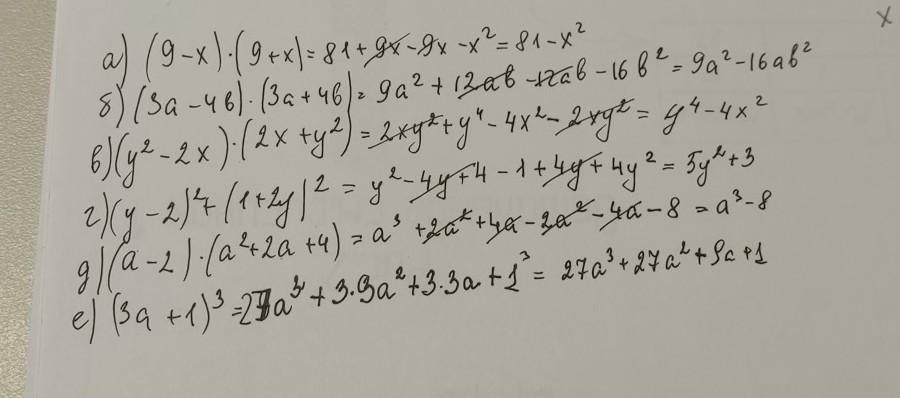 х
а) (9-x)·(9+x)=81+9x-9x-x²=81-x²
б) (3a-4b)·(3a+4b)=9a²+12ab-12ab-16b²=9a²-16ab²
в) (y²-2x)·(2x+y²)=2xy²+y⁴-4x²-2xy²=y⁴-4x²
г) (y-2)²+(1+2y)²=y²-4y+4-1+4y+4y²=5y²+3
д) (a-2)·(a²+2a+4)=a³+2a²+4a-2a²-4a-8=a³-8
е) (3a+1)³=27a³+3·9a²+3·3a+1³=27a³+27a²+9a+1